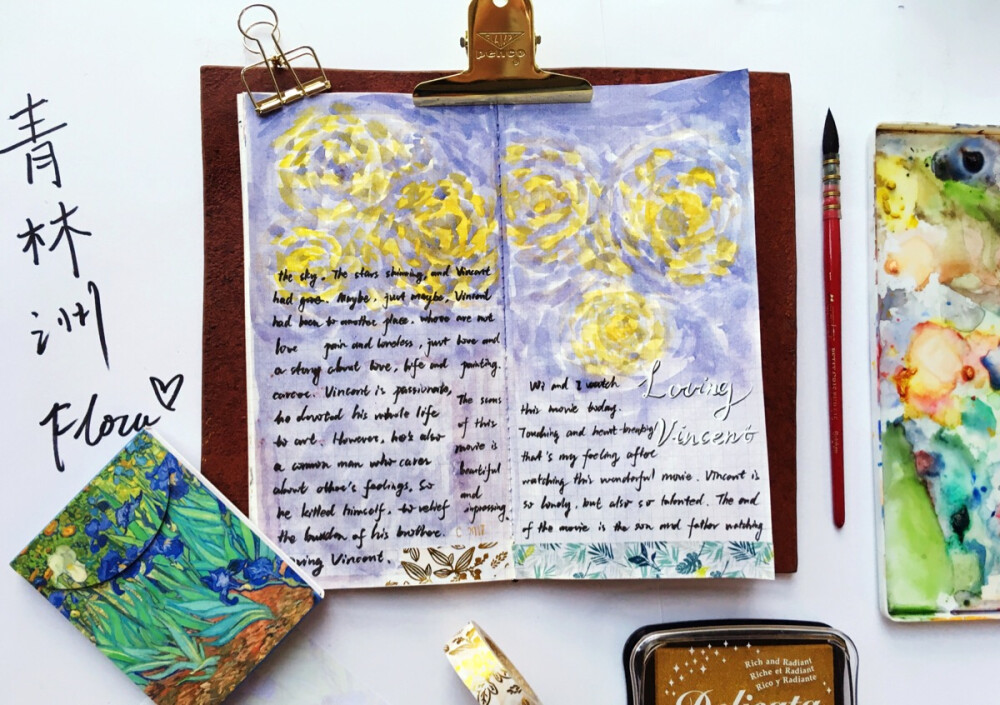 青林洲
Flora
penco
the sky. The stars shinning, and Vincent
had gone. Maybe, just maybe, Vincent
had been to another place. where are not
love pain and loneless, just love and
a story about love, life and painting.
career. Vincent is passionate,
he devoted his whole life
to art. However, he's also
a common man who cares
about other's feelings, so
he killed himself. to relief
the burden of his brother.
ving Vincent.
The
of this
movie is
beautiful
and
inpressing.
and I watch
this movie today.
Touching and heart-breaking
that's my feeling after
watching this wonderful movie. Vincent is
so lonely, but also so talented. The end
of the movie is the son and father watching
Loving
Vincent
Rich and Radiant
Riche et Radiant
Rico y Radiante
Delicata